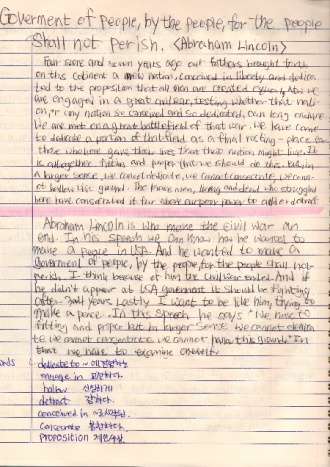 Goverment of people, by the people, for the people
shall not perish. <Abraham Lincoln>
Four score and seven years ago our fathers brought forth
on this cotinent a new nation, conceived in liberty and dedica
ted to the proposition that all men are created equal. Now we
are engaged in a great civil war, testing whether that nati
on, or any nation so conceived and so dedicated, can long endure.
We are met on a great battlefield of that war. We have come
to dedicate a portion of that field as a final resting-place to
those who here gave their lives that that nation might live. It
is altogether fitting and proper that we should do this. but, in
a larger sense, we cannot dedicate, we cannot consecrate, we cann
ot hallow this ground. The brave men, living and dead who struggled
here have consecrated it far above our poor power to add or detract
Abraham Lincoln is who make the civil war an
end. In his speech we can know how he wanted to
make a peace in USA. And he wanted to make a
government of people, by the people, for the people shall not
perish. I think because of him the civil war ended. And if
he didn't appear at USA goverment it should be fighting
after years. Lastly I want to be like him, trying to
make a peace. In this speech he says "We have to
fitting and proper but in larger sense we cannot
to we cannot consecrate we cannot this ground." In
that we have to examine oneself.
dedicate to ~에
engage in
hallow 신성하게
detract
conceived in
consecrate
proposition